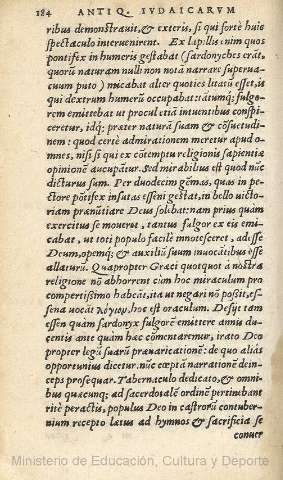 184 ANTIQ. IVDAICARVM
ribus demonstrauit, & exteris, si qui fortè huic
spectaculo interuenirent. Ex lapillis enim quos
pontifex in humeris gestabat (sardonyches erāt,
quorū naturam nulli non notā narrare superua-
cuum puto) micabat alter quoties litatū esset, is
qui dextrum humerū occupabat: tātumq; fulgo-
rem emittebat ut procul etiā intuentibus conspi-
ceretur, idq; præter naturā suam & cōsuetudi-
nem: quod certè admirationem meretur apud o-
mnes, nisi si qui ex cōtemptu religionis sapientiæ
opinionē aucupātur. Sed mirabilius est quod nūc
dicturus sum. Per duodecim gēmas, quas in pe-
ctore pōtifex insutas essēni gestat, in bello victo-
riam prænūtiare Deus solebat: nam prius quàm
exercitus se moueret, tantus fulgor ex eis emi-
cabat, ut toti populo facilè innotesceret, adesse
Deum, opemq; & auxiliū suum inuocātibus esse
allaturū. Quapropter Græci quotquot à nostra
religione nō abhorrent cùm hoc miraculum pro
compertissimo habeāt, ita ut negari nō possit, es-
sena vocāt λόγιον, hoc est oraculum. Desijt tam
essēn quàm sardonyx fulgorē emittere annis du-
centis ante quàm hæc cōmentaremur, irato Deo
propter legū suarū præuaricationē: de quo aliàs
opportunius dicetur. nūc cœptā narrationē dein-
ceps prosequar. Tabernaculo dedicato, & omni-
bus quæcunq; ad sacerdotalē ordinē pertinebant
ritè peractis, populus Deo in castrorū contuber-
nium recepto lætus ad hymnos & sacrificia se
conuer
Ministerio de Educación, Cultura y Deporte